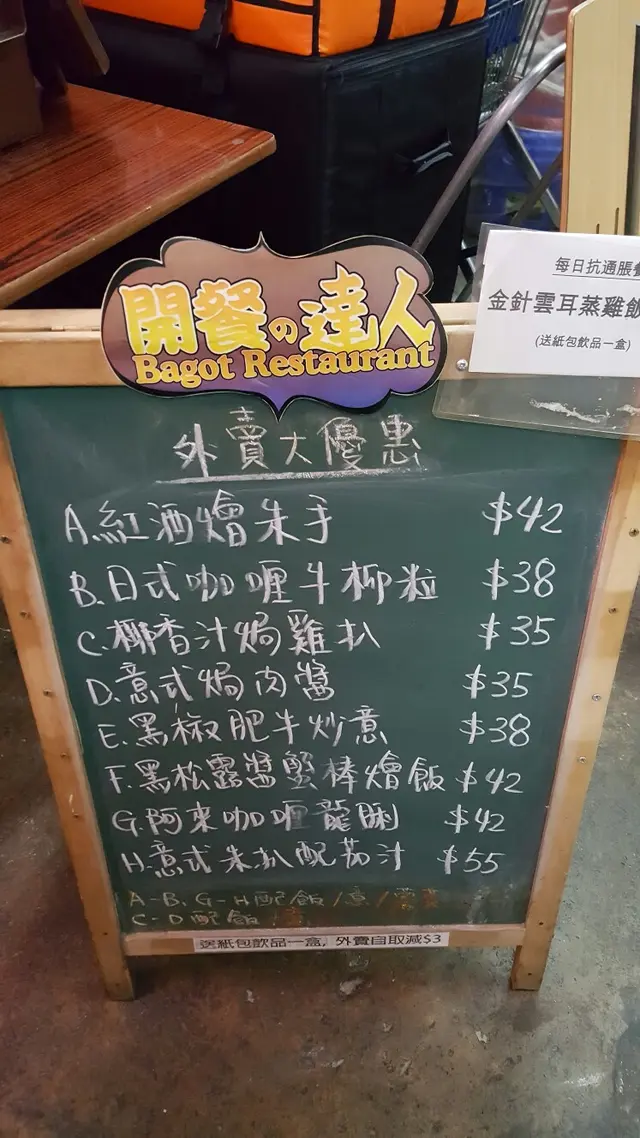 開餐の達人
Bagot Restaurant
每日抗通脹
金針雲耳蒸雞飯
(送紙包飲品一盒)
外賣大優惠
A.紅酒燴朱手 $42
B.日式咖喱牛柳粒 $38
C.椰香汁焗雞扒 $35
D.意式焗肉醬 $35
E.黑椒肥牛炒意 $38
F.黑松露醬蟹棒燴飯 $42
G.阿來咖喱龍脷 $42
H.意式朱扒配茄汁 $55
A-B, G-H配飯/意/
C-D配飯/意
送紙包飲品一盒, 外賣自取減$3